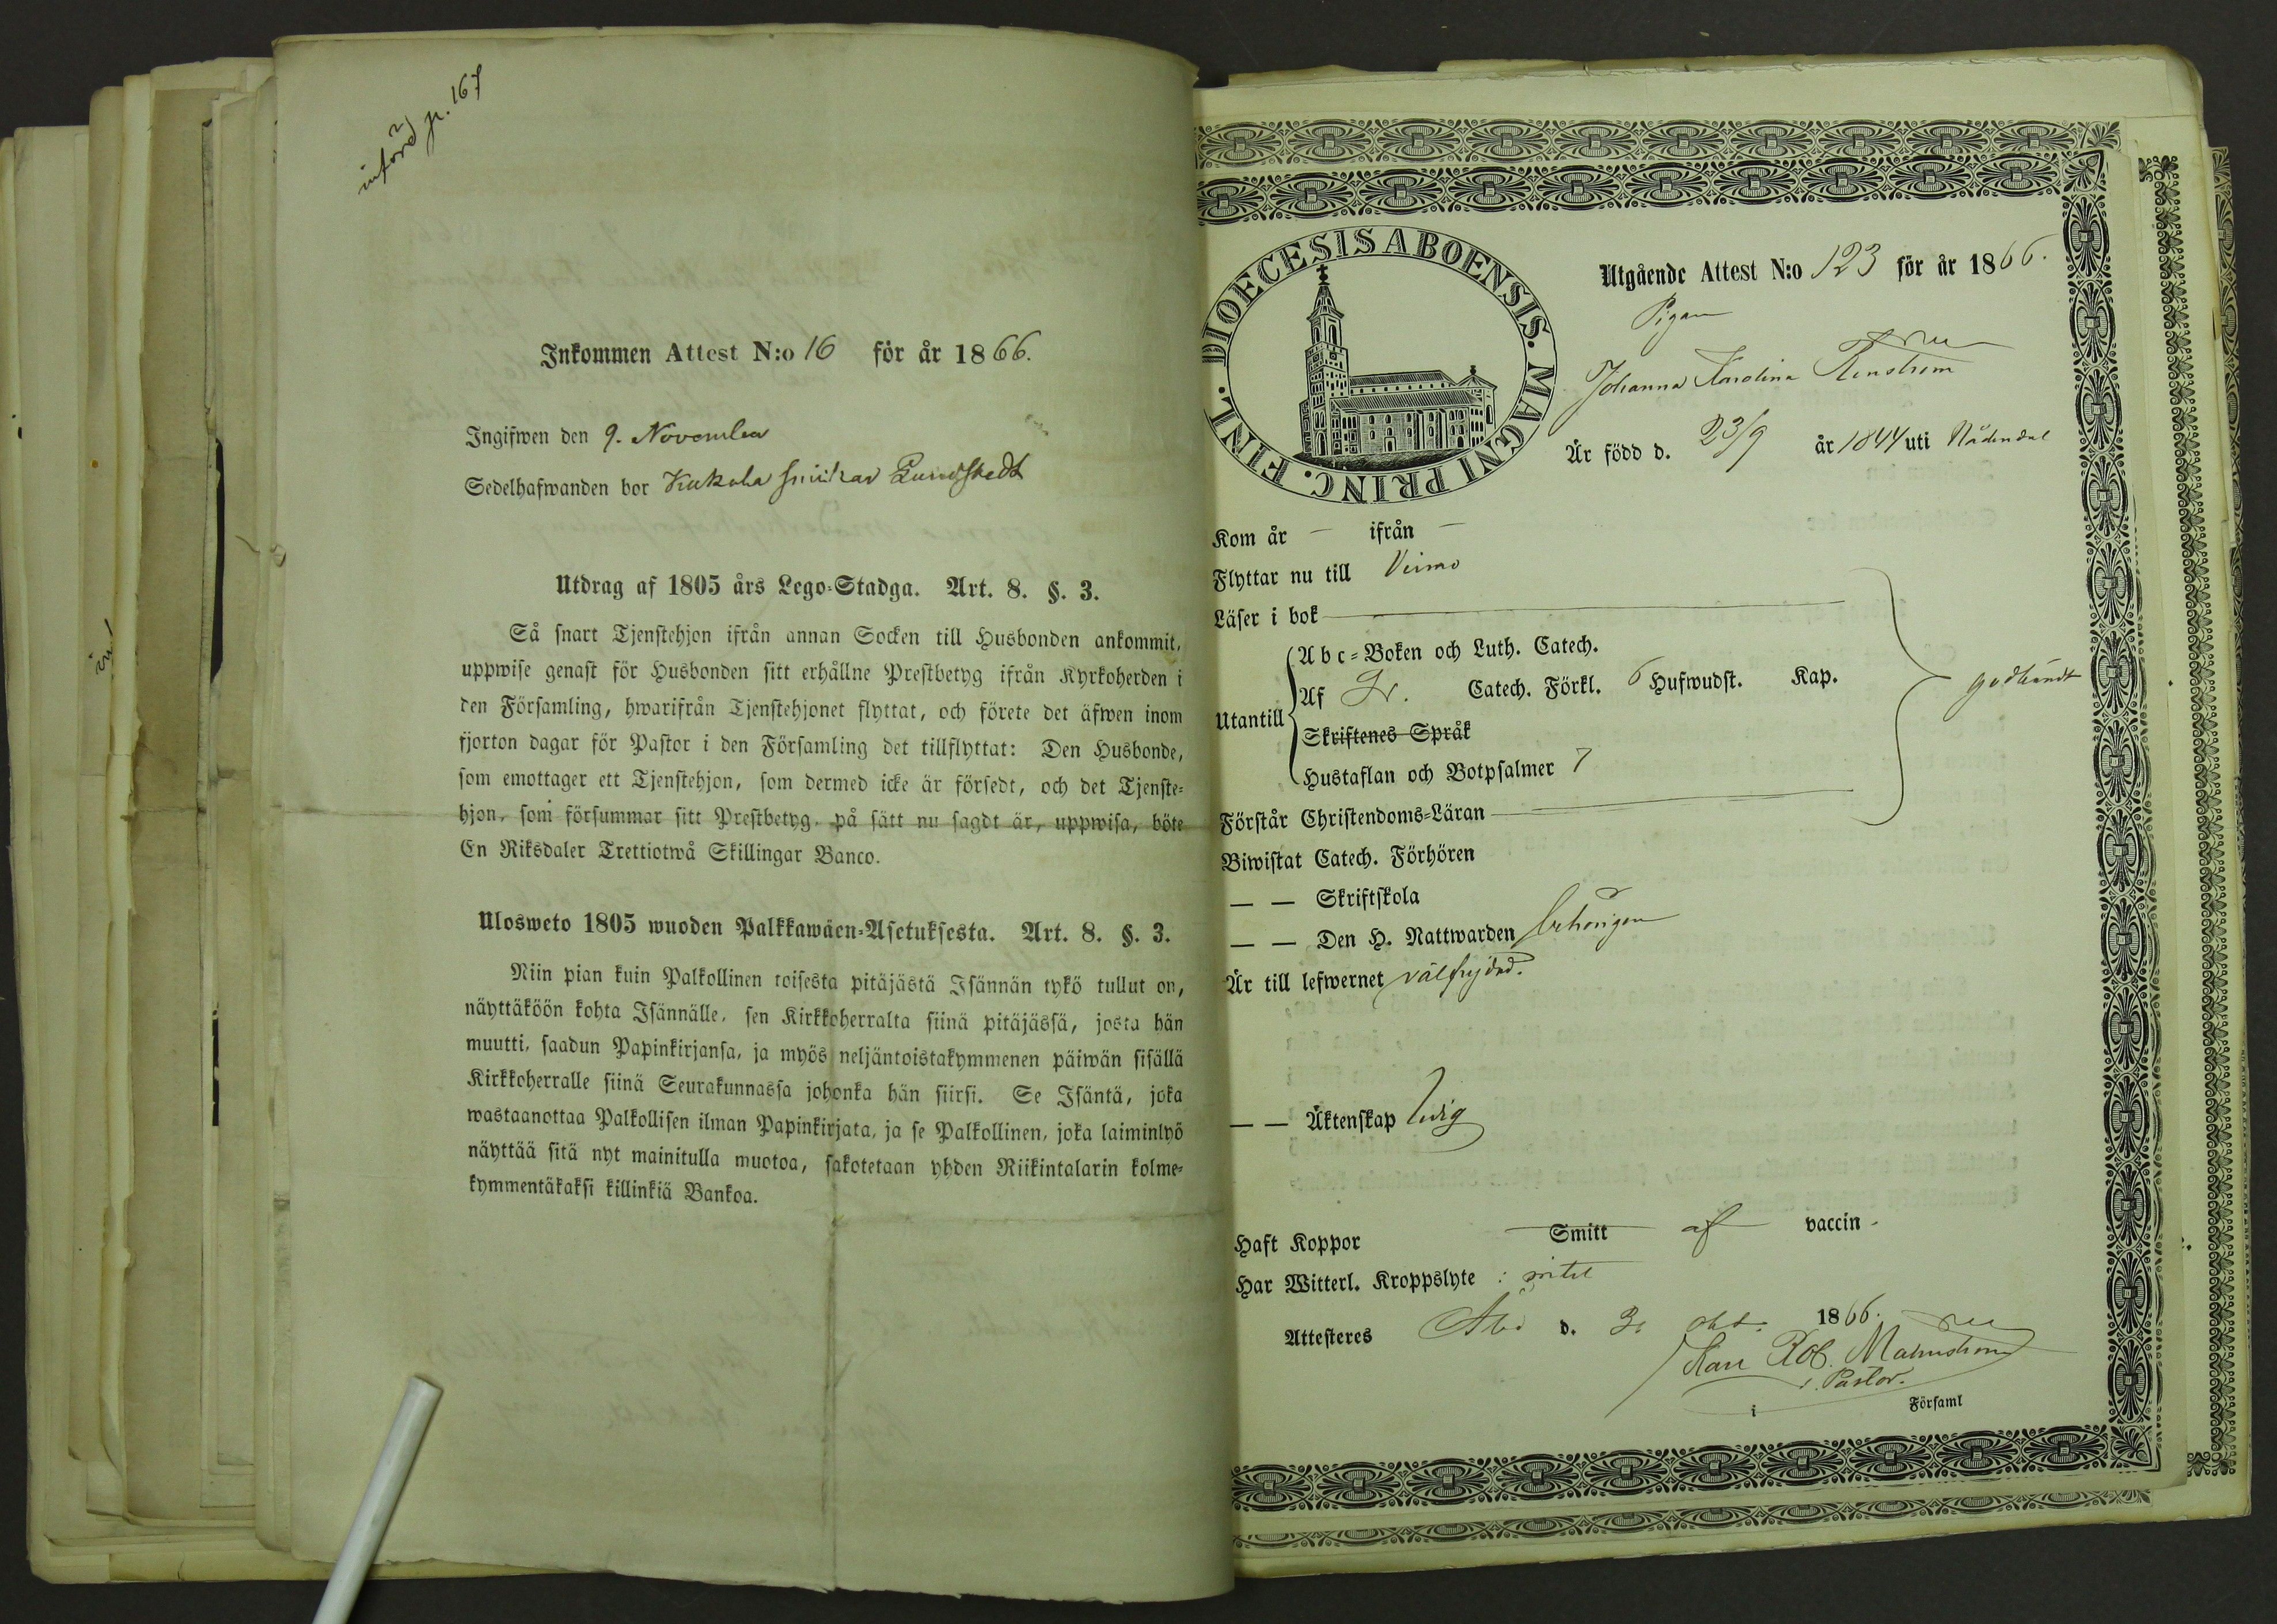 införd p. 167
Inkommen Attest N:o 16 för år 1866.
Ingifwen den 9. November
Sedelhafwanden bor Kukola Lundstedt
Utdrag af 1805 års Lego-Stadga. Art. 8. §. 3.
Så snart Tjenstehjon ifrån annan Socken till Husbonden ankommit,
uppwise genast för Husbonden sitt erhållne Prestbetyg ifrån Kyrkoherden i
den Församling, hwarifrån Tjenstehjonet flyttat, och förete det äfwen inom
fjorton dagar för Pastor i den Församling det tillflyttat: Den Husbonde,
som emottager ett Tjenstehjon, som dermed icke är försedt, och det Tjenste-
hjon, som försummar sitt Prestbetyg, på sätt nu sagdt är, uppwisa, böte
En Riksdaler Trettiotwå Skillingar Banco.
Ulosweto 1805 wuoden Palkkawäen-Asetuksesta. Art. 8. §. 3.
Niin pian kuin Palkollinen toisesta pitäjästä Isännän tykö tullut on,
näyttäköön kohta Isännälle, sen Kirkkoherralta siinä pitäjässä, josta hän
muutti, saadun Papinkirjansa, ja myös neljäntoistakymmenen päiwän sisällä
Kirkkoherralle siinä Seurakunnassa johonka hän siirsi. Se Isäntä, joka
wastaanottaa Palkollisen ilman Papinkirjata, ja se Palkollinen, joka laiminlyö
näyttää sitä nyt mainitulla muotoa, sakotetaan yhden Riikintalarin kolme-
kymmentäkaksi killinkiä Bankoa.
DIOECESIS ABOENSIS. MAGNI PRINC. FINL.
Utgående Attest N:o 123 för år 1866.
Pigan
Johanna Karolina Renström
Är född d. 23/9 år 1844 uti Nådendal
Kom år — ifrån —
Flyttar nu till Virmo
Läser i bok
Abc-Boken och Luth. Catech.
Utantill Af Sv. Catech. Förkl. 6 Hufwudst. Kap. godkändt
Skriftenes Språk
Hustaflan och Botpsalmer 7
Förstår Christendoms-Läran
Biwistat Catech. Förhören
— — Skriftskola
— — Den H. Nattwarden behörigen
Är till lefwernet välfrejdad.
— — Äktenskap ledig
Haft Koppor Smitt af vaccin.
Har Witterl. Kroppslyte : intet
Attesteres Åbo d. okt. 1866.
Karl Rob. Malmström
Pastor.
i Församl